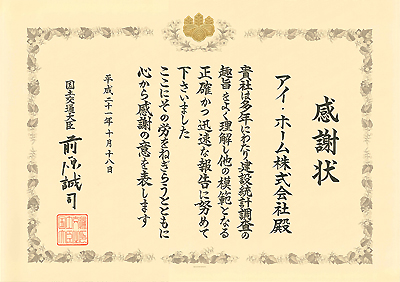 感謝状
アイ・ホーム株式会社殿
貴社は多年にわたり建設統計調査の
趣旨をよく理解し他の模範となる
正確かつ迅速な報告に努めて
下さいました
ここにその労をねぎらうとともに
心から感謝の意を表します
平成二十一年十月十八日
国土交通大臣 前原誠司